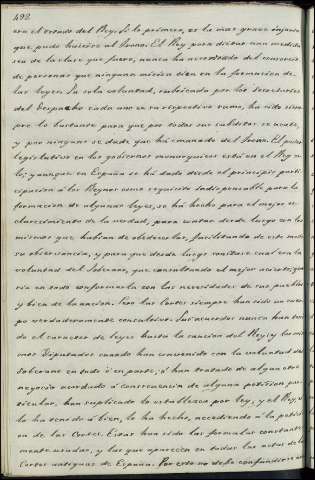 492.
era el trondo del Rey. Si lo primero, es la mas grave injuria
que pudo hacerse al Trono. El Rey para dictar una medida
sea de la clase que fuere, nunca ha necesitado del consorcio
de personas que ninguna mision tien en la formacion de
las leyes. Su sola voluntad, rubricada por los Secretarios
del Despacho cada uno en su respectivo ramo, ha sido siem
pre lo bastante para que por todos sus subditos se acate,
y por ninguno se dude que ha emanado del Trono. El poder
legislativo en los gobiernos monarquicos está en el Rey so
lo; y aunque en España se ha dado desde el principio parti
cipacion á los Reynos como requisito indispensable para la
formacion de algunas leyes, se ha hecho para el mejor es
clarecimiento de la verdad, para contar desde luego con los
mismos que habian de obedecerlas, facilitando de este modo
su observancia, y para que desde luego constase cual era la
voluntad del Soberano, que consultando el mejor acierto, que
ria en todo conformarla con las necesidades de sus pueblos
y bien de la nacion. Pero las Cortes siempre han sido un cuer
po verdaderamente consultivo. Sus acuerdos nunca han teni
do el caracter de leyes hasta la sancion del Rey; y los mis
mos Diputados cuando han convenido con la voluntad del
Soberano en todo ó en parte, ó han tratado de algun otro
negocio acordado á consecuencia de alguna peticion par
ticular, han suplicado lo establezca por ley, y el Rey, si
lo ha tenido á bien, lo ha hecho, accediendo á la petici
on de las Cortes. Estas han sido las formulas constante
mente usadas, y las que aparecen en todas las actas de las
Cortes antiguas de España. Por esto no debe confundirse